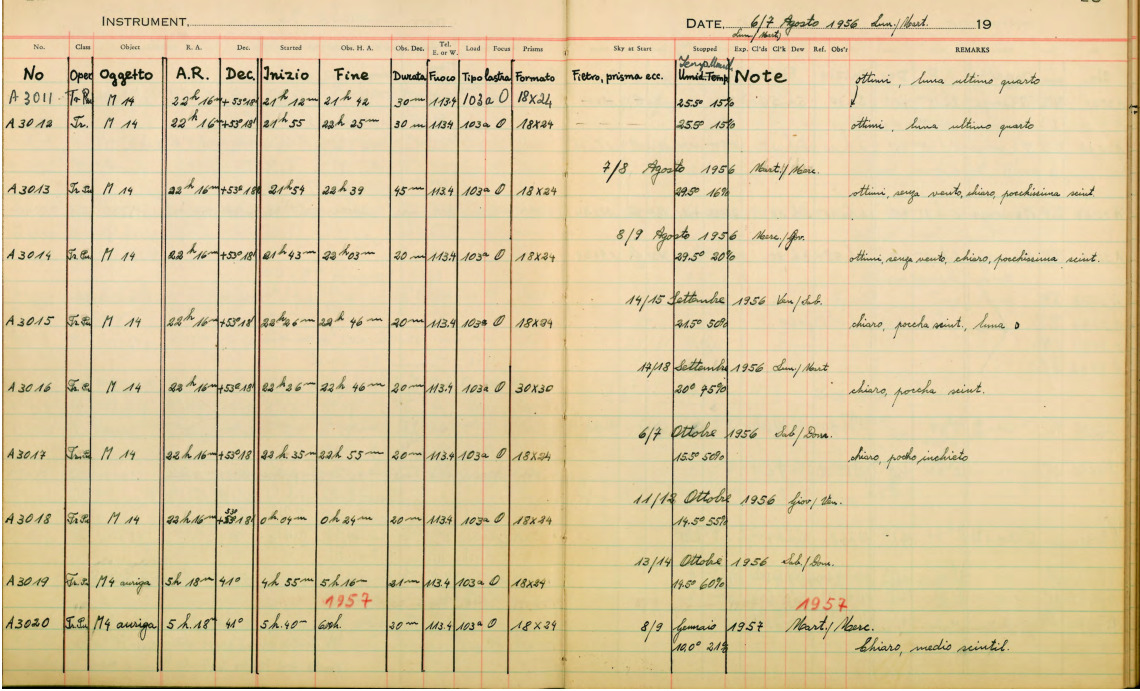 INSTRUMENT, DATE, 6/7 Agosto 1956 Lun./Mart. 19
Lun/Mart)
No. Class Object R. A. Dec. Started Obs. H. A. Obs. Dec. Tel. E. or W. Load Focus Prisms Sky at Start Stopped Exp. Cl'ds Cl'k Dew Ref. Obs'r REMARKS
No Oper Oggetto A.R. Dec. Inizio Fine Durata Fuoco Tipo lastra Formato Filtro, prisma ecc. Umid. Temp Note ottimi, luna ultimo quarto
A 3011 M 14 22h 16m +53°18' 21h 12m 21h 42 30m 113.4 103a O 18X24 25.5° 15%
A 3012 Tr. M 14 22h 16m +53°18' 21h 55 22h 25m 30m 113.4 103a O 18X24 25.5° 15% ottimi, luna ultimo quarto
7/8 Agosto 1956 Mart./Merc.
A 3013 M 14 22h 16m +53°18' 21h 54 22h 39 45m 113.4 103a O 18X24 29.5° 16% ottimi, senza vento, chiaro, pocchissima scint.
8/9 Agosto 1956 Merc./Gov.
A 3014 M 14 22h 16m +53°18' 21h 43m 22h 03m 20m 113.4 103a O 18X24 29.5° 20% ottimi, senza vento, chiaro, pocchissima scint.
14/15 Settembre 1956 Ven/Sab.
A 3015 M 14 22h 16m +53°18' 22h 26m 22h 46m 20m 113.4 103a O 18X24 21.5° 50% chiaro, poccha scint., luna
17/18 Settembre 1956 Lun/Mart
A 3016 M 14 22h 16m +53°18' 22h 26m 22h 46m 20m 113.4 103a O 30X30 20° 45% chiaro, poccha scint.
6/7 Ottobre 1956 Sab/Dom.
A 3017 M 14 22h 16m +53°18 22h 35m 22h 55m 20m 113.4 103a O 18X24 15.5° 50% chiaro, pocho inchieto
11/12 Ottobre 1956 Giov/Ven.
A 3018 M 14 22h 16m +53° 18' 0h 04m 0h 24m 20m 113.4 103a O 18X24 14.5° 55%
13/14 Ottobre 1956 Sab./Dom.
A 3019 M4 auriga 5h 18m 41° 4h 55m 5h 16m 21m 113.4 103a O 18X24 14.5° 60%
1957 1957
A3020 M4 auriga 5h.18m 41° 5h.40m 20m 113.4 103a O 18X24 8/9 Gennaio 1957 Mart./Merc.
10.0° 21% Chiaro, medio scintil.